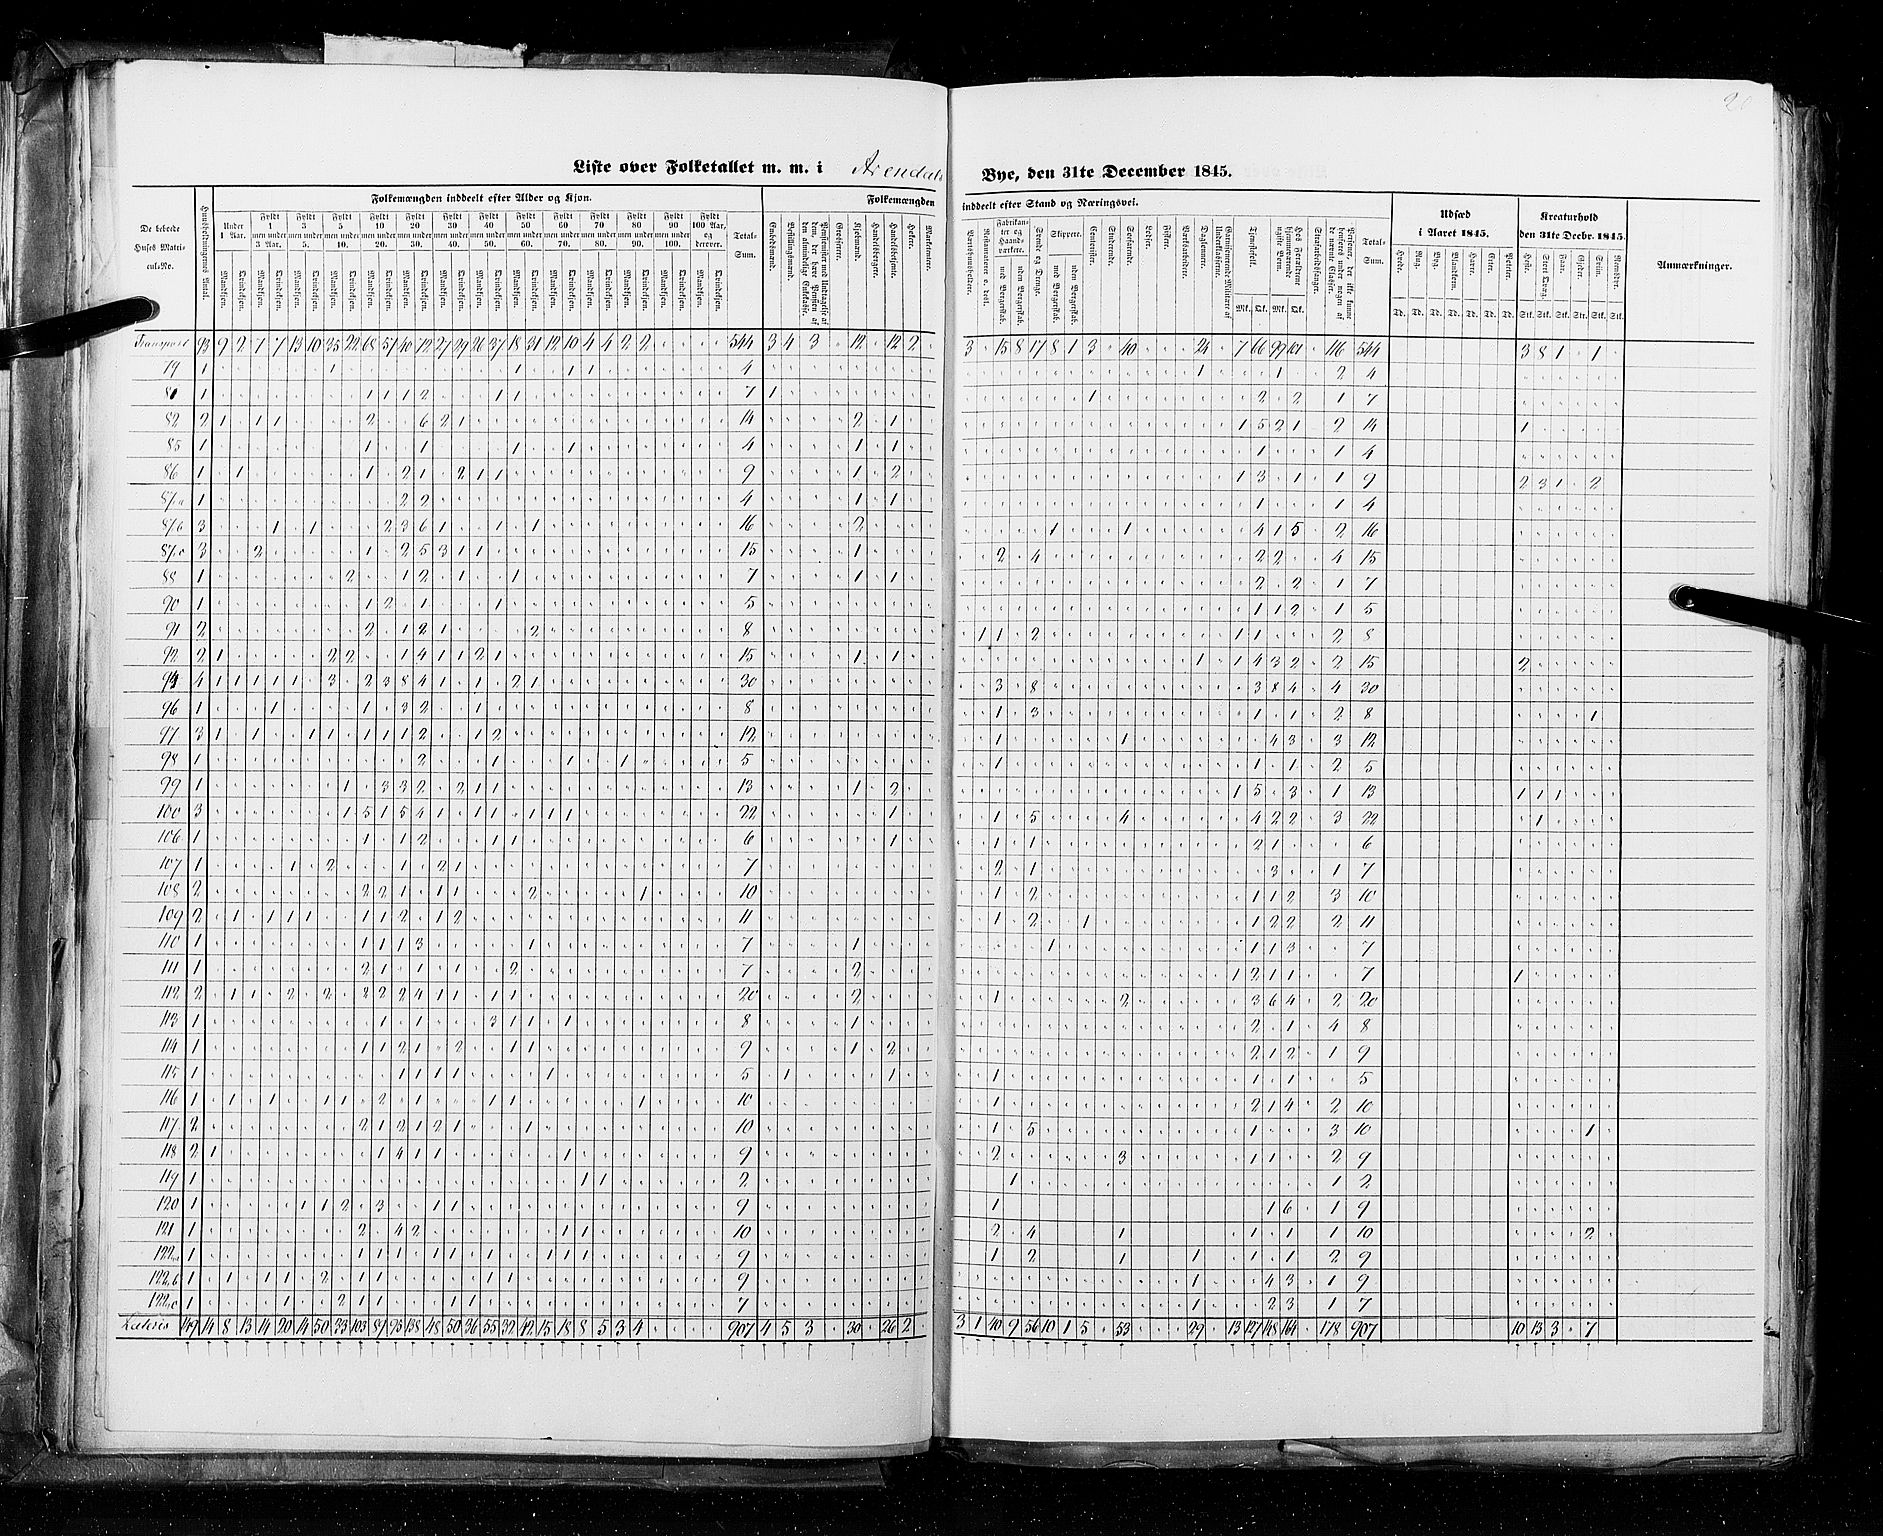 20
Liste over Folketallet m. m. i Arendals Bye, den 31te December 1845.
De beboede Huses Matricul-No.
Huusholdningernes Antal.
Folkemængden inddeelt efter Alder og Kjøn.
Folkemængden inddeelt efter Stand og Næringsvei.
Udsæd i Aaret 1845.
Kreaturhold den 31te Decbr. 1845.
Anmærkninger.
Under 1 Aar.
Fyldt 1 men under 3 Aar.
Fyldt 3 men under 5.
Fyldt 5 men under 10.
Fyldt 10 men under 20.
Fyldt 20 men under 30.
Fyldt 30 men under 40.
Fyldt 40 men under 50.
Fyldt 50 men under 60.
Fyldt 60 men under 70.
Fyldt 70 men under 80.
Fyldt 80 men under 90.
Fyldt 90 men under 100.
Fyldt 100 Aar, og derover.
Mandkjøn. Qvindekjøn.
Total-Sum.
Embedsmænd.
Bestillingsmænd.
Grosserere.
Kjøbmænd.
Handelsborgere.
Handelsbetjente.
Høkere.
Marketentere.
Værtshuusholdere.
Fabrikanter og Haandværkere.
med Borgerskab.
uden Borgerskab.
Svende og Drenge.
Skippere.
med Borgerskab.
uden Borgerskab.
Contorister.
Studerende.
Søefarende.
Lodser.
Fiskere.
Værkarbeidere.
Daglønnere.
Tjenestefolk.
Mk. Qk. Mk. Qk.
Strafarbeidsfanger.
Total-Sum.
Hvede. Rug. Byg. Blandkorn. Havre. Erter. Poteter.
Td. Td. Td. Td. Td. Td. Td.
Heste. Stort Qvæg. Faar. Gjeder. Sviin. Rensdyr.
Stk. Stk. Stk. Stk. Stk. Stk.
Transport 93 9 2 7 7 13 10 25 22 68 51 40 72 27 29 26 37 18 31 12 10 4 4 2 2 544 3 4 3 12 12 2 3 15 8 17 8 1 3 40 24 7 66 99 101 116 544 3 8 1 1
79 1 1 1 1 1 4 1 1 2 4
81 1 1 1 1 2 1 1 7 1 1 2 2 1 7
82 2 1 1 1 2 6 2 1 14 2 1 1 5 2 1 2 14 1
85 1 1 1 1 1 4 1 1 1 1 4
86 1 1 1 2 1 2 1 1 9 1 2 1 3 1 1 9 2 3 1 2
87a 1 2 2 4 1 1 1 1 4
87b 3 1 1 2 3 6 1 1 1 16 2 1 1 4 1 5 2 16
87c 3 2 1 2 5 3 1 1 15 1 2 4 2 2 4 15
88 1 2 1 2 1 1 7 1 1 2 2 1 7
90 1 1 2 1 1 5 1 1 2 1 5
91 2 2 1 2 1 2 8 1 1 2 1 1 2 8
92 2 1 2 2 1 4 1 1 2 1 15 1 1 1 1 4 3 2 2 15 2
94 4 1 1 1 1 1 3 2 3 8 4 1 1 2 1 30 3 8 3 8 4 4 30
96 1 1 1 3 2 1 8 1 3 1 1 2 8 1
97 3 1 1 1 1 1 1 1 2 1 2 12 1 1 4 3 3 12
98 1 2 1 1 1 5 1 1 1 2 5
99 1 1 3 3 2 2 1 1 13 1 2 1 5 3 1 13 1 1 1
100 3 1 5 1 5 4 1 1 1 1 1 1 22 1 1 5 4 4 2 2 3 22 1
106 1 1 1 2 1 1 6 1 1 1 2 1 6
107 1 1 2 1 2 1 7 2 1 3 1 7
108 2 2 2 1 1 1 2 1 10 1 2 1 1 2 3 10
109 2 1 1 1 1 1 1 2 1 2 11 1 2 1 1 2 2 2 11
110 1 1 1 1 3 1 7 1 1 1 1 3 7
111 1 2 1 1 1 2 7 2 1 2 1 1 7 1
112 2 1 1 2 2 2 2 2 4 1 1 1 1 20 2 1 2 3 6 4 2 20
113 1 1 1 3 1 1 1 8 1 2 1 4 8
114 1 1 1 2 1 2 1 1 9 1 2 2 1 2 1 9
115 1 1 1 1 1 1 5 1 1 1 1 1 5
116 1 1 1 1 1 2 1 1 1 1 10 1 2 1 4 2 10
117 2 2 1 2 1 2 1 1 10 1 5 1 3 10 1
118 2 1 1 4 1 1 1 9 2 3 1 1 2 9
119 1 1 1 2 1 1 2
120 1 1 1 2 3 1 1 9 1 1 6 1 9
121 1 2 4 2 1 1 10 2 4 1 1 1 1 10 2
122a 1 1 1 1 1 1 1 1 1 1 9 1 2 1 1 1 1 2 9
122b 1 1 1 1 2 1 1 1 1 9 1 4 3 1 9
122c 1 1 2 1 1 1 1 7 1 2 3 1 7
Lateris 149 14 8 13 14 20 14 50 33 103 87 93 138 48 50 36 55 32 42 15 18 8 5 3 4 907 4 5 3 30 26 2 3 1 40 9 56 10 1 5 53 29 13 127 148 164 178 907 10 13 3 7